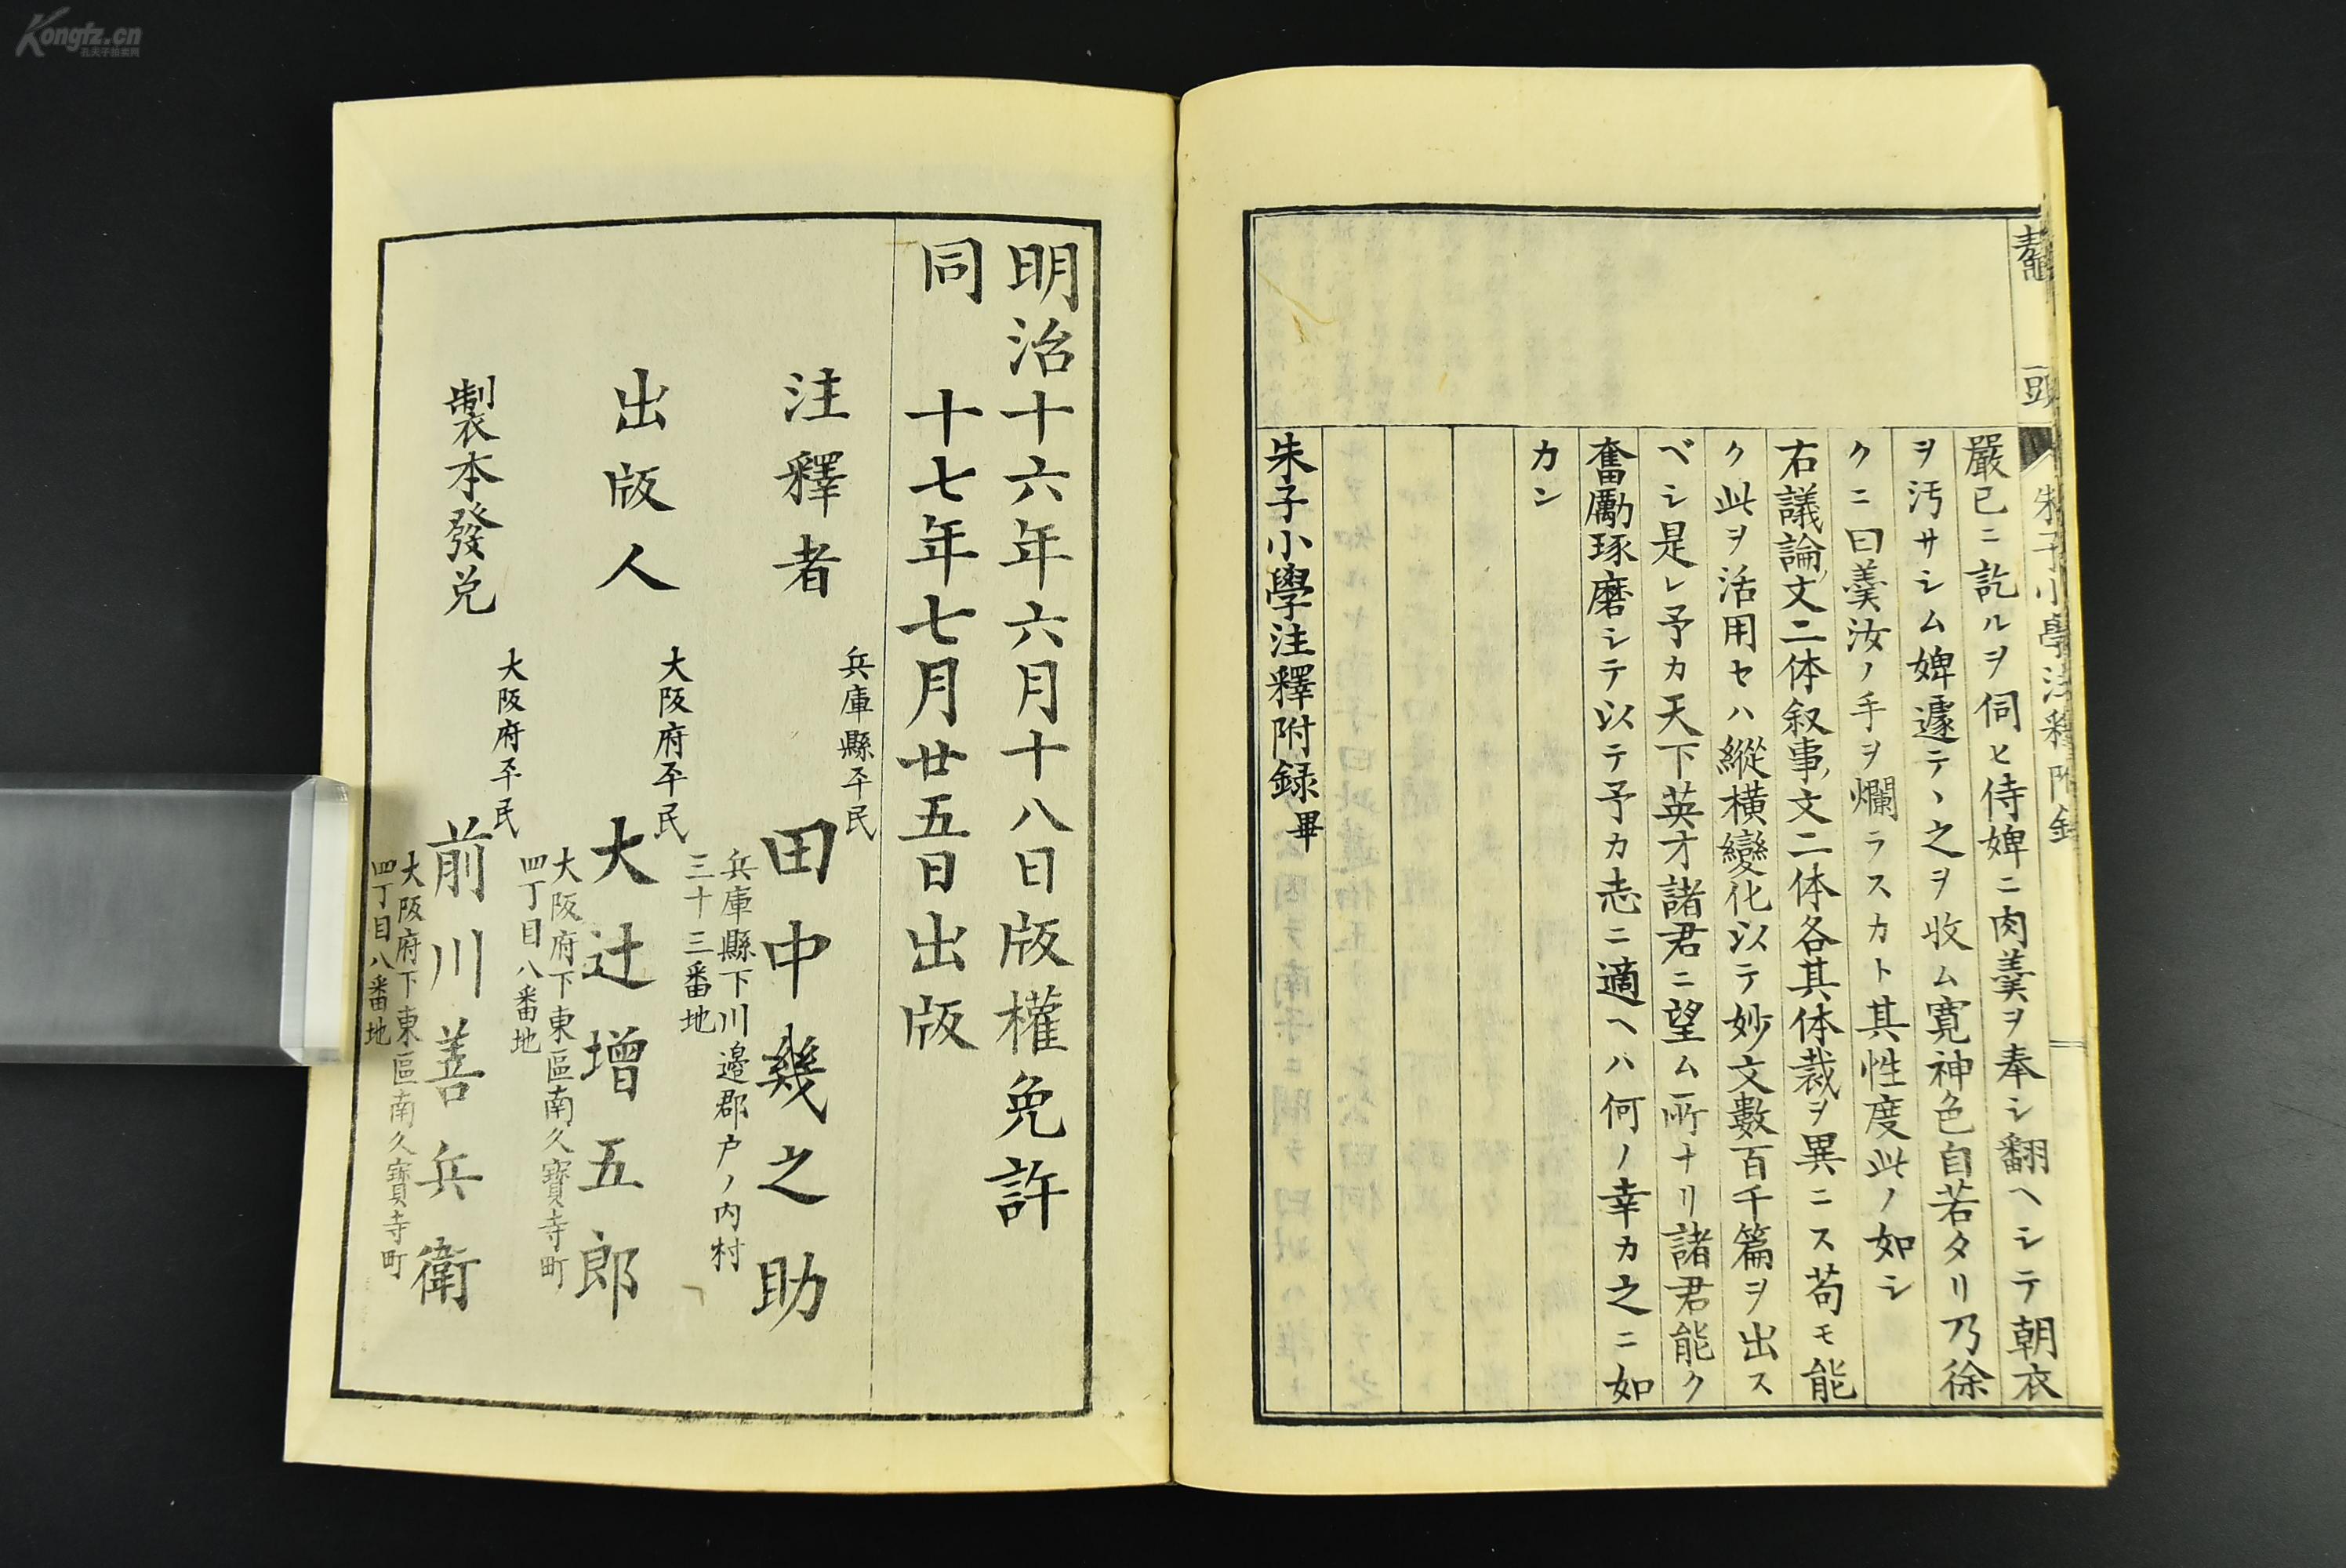 鼇頭
朱子小學注釋附錄
嚴已ニ訖ルヲ伺ヒ侍婢ニ肉羹ヲ奉シ翻ヘシテ朝衣
ヲ汚サシム婢遽テヽ之ヲ收ム寛神色自若タリ乃徐
クニ曰羹汝ノ手ヲ爛ラスカト其性度此ノ如シ
右議論文二体叙事文二体各其体裁ヲ異ニス苟モ能
ク此ヲ活用セハ縱橫變化以テ妙文數百千篇ヲ出ス
ベシ是レ予カ天下英才諸君ニ望ム所ナリ諸君能ク
奮勵琢磨シテ以テ予カ志ニ適ヘハ何ノ幸カ之ニ如
カン
朱子小學注釋附録畢
明治十六年六月十八日版權免許
同十七年七月廿五日出版
兵庫縣平民
注釋者 田中幾之助
兵庫縣下川邉郡戸ノ内村
三十三番地
大阪府平民
出版人 大辻增五郎
大阪府下東區南久寶寺町
四丁目八番地
大阪府平民
製本發兌 前川善兵衛
大阪府下東區南久寶寺町
四丁目八番地
Kongfz.cn
孔夫子拍卖网